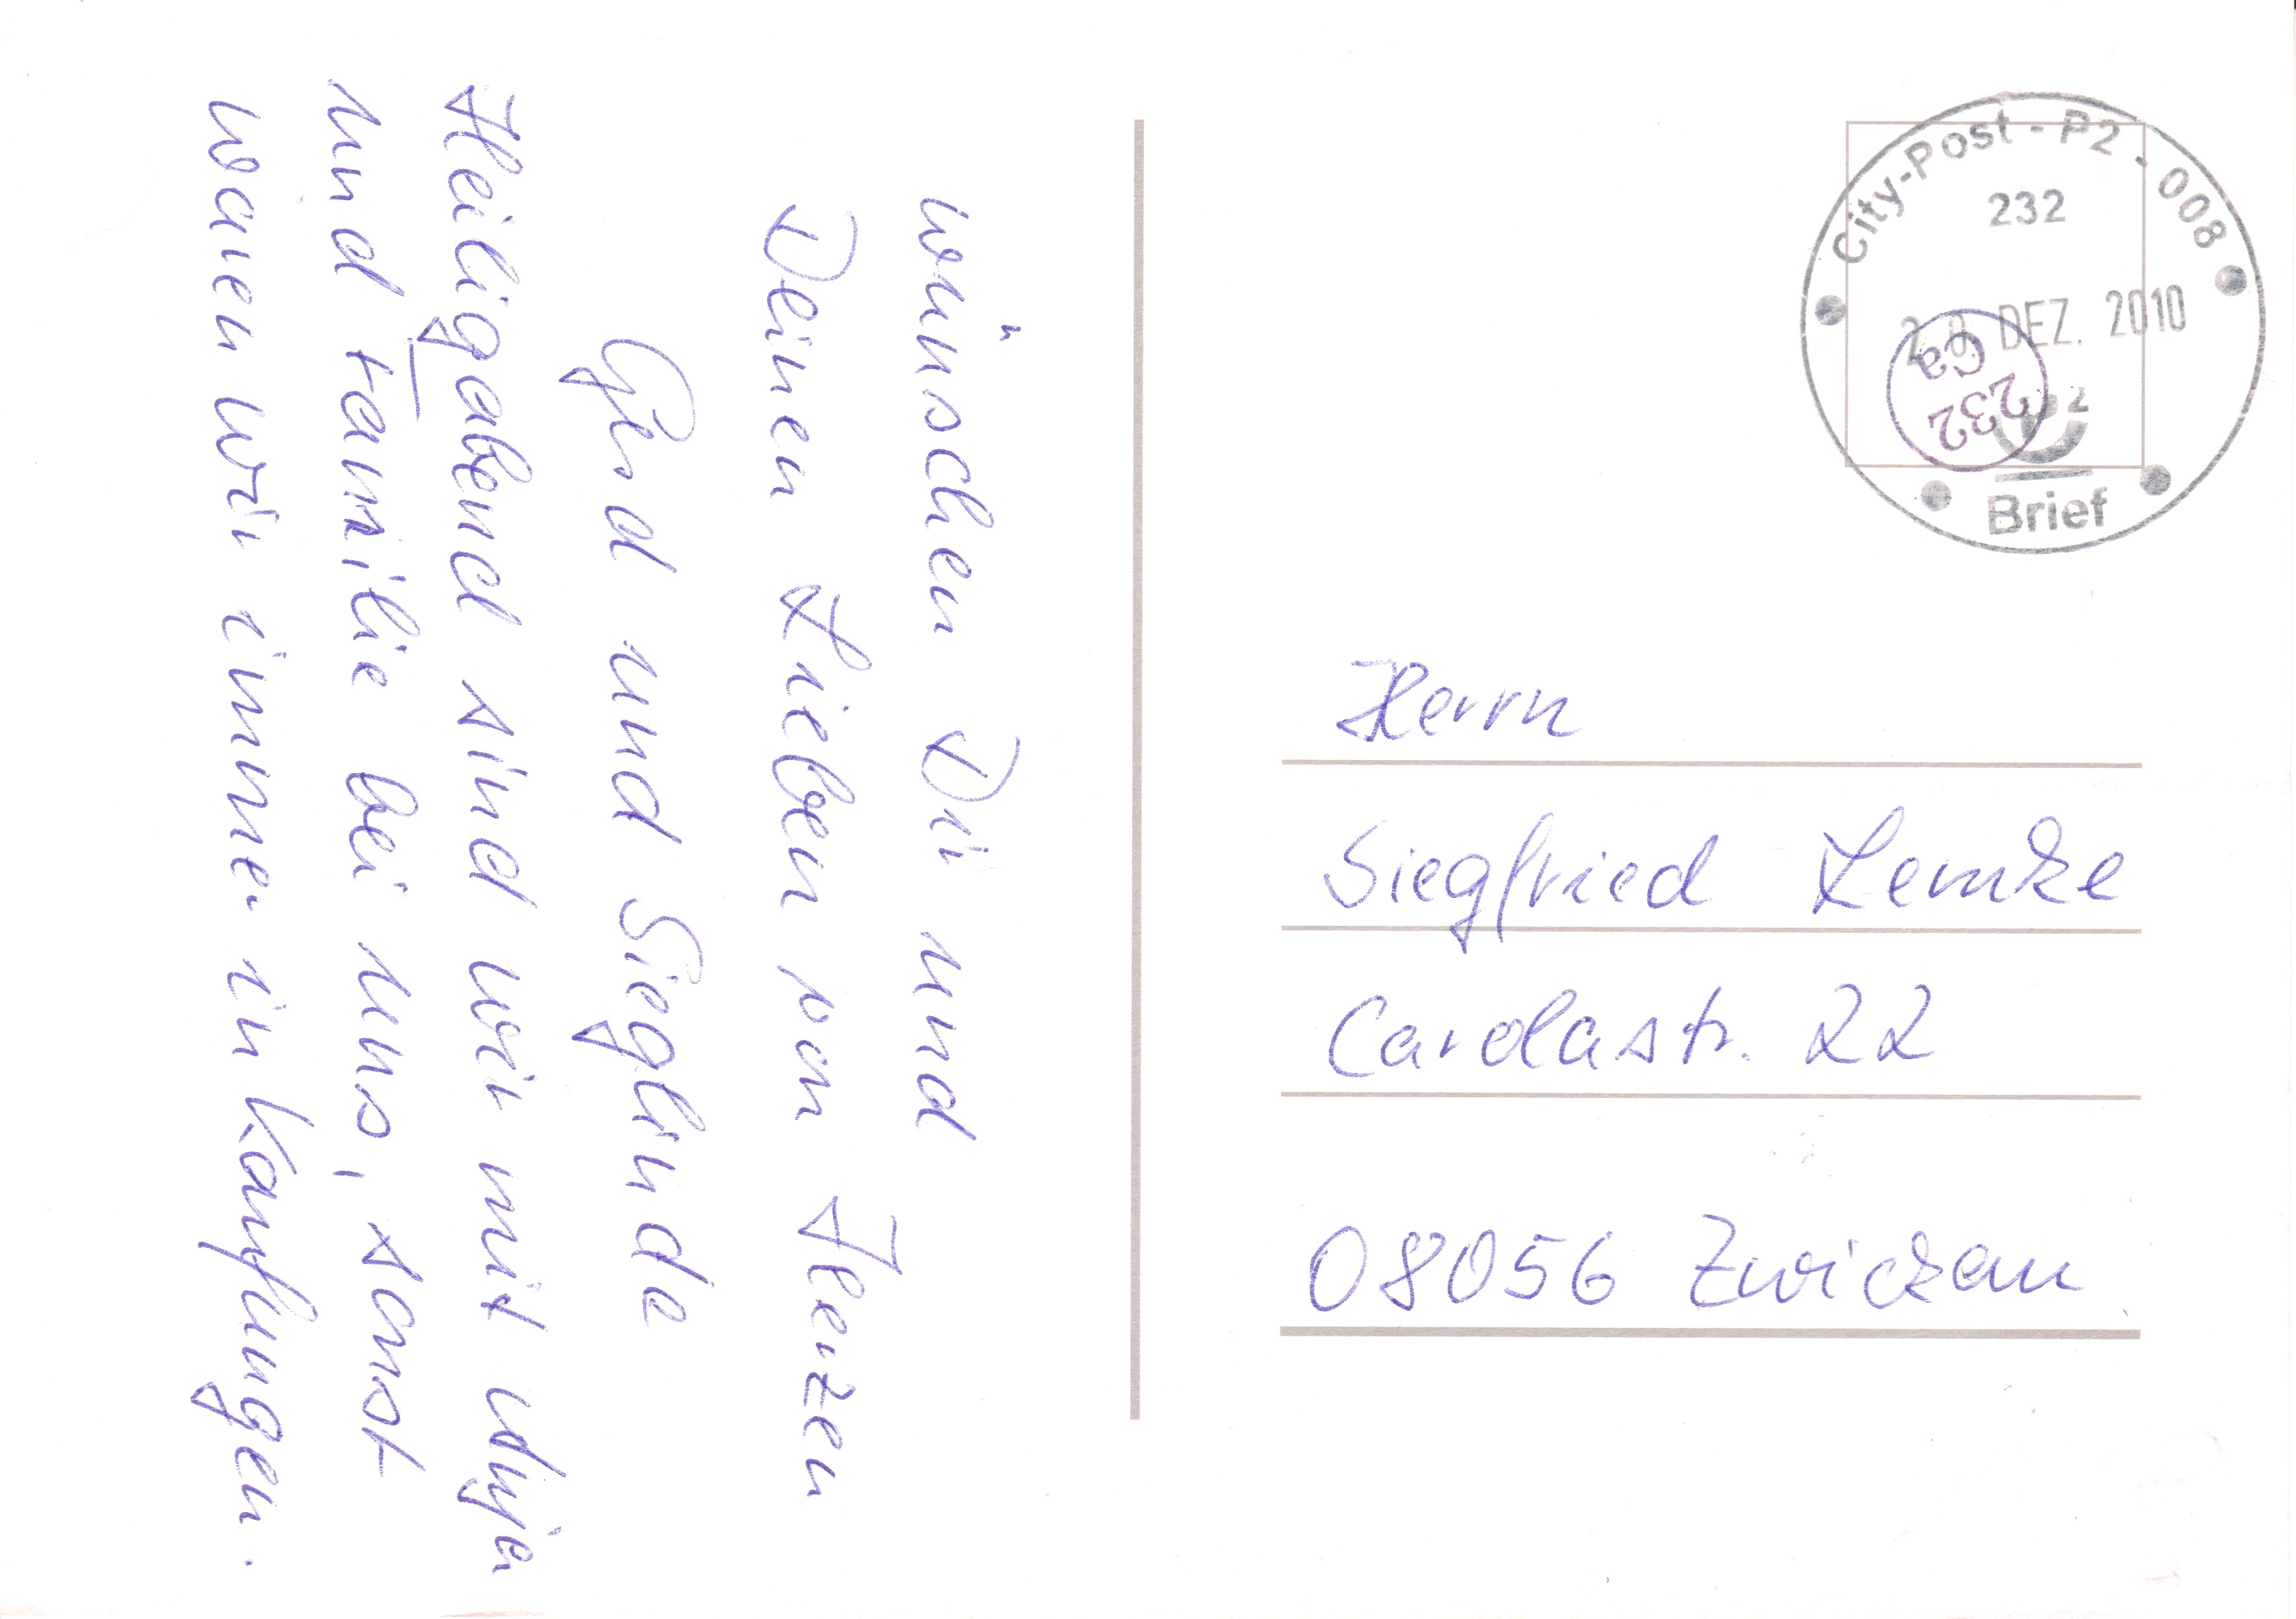 wünschen Dir und
Deinen Lieben von Herzen
Gerd und Sieglinde
Heiligabend sind wir mit
und Familie bei uns, sonst
waren wir immer in Kaufungen.
City-Post - P2 - 008
232
DEZ. 2010
232
Ca
Brief
Herrn
Siegfried Lemke
Carolastr. 22
08056 Zwickau